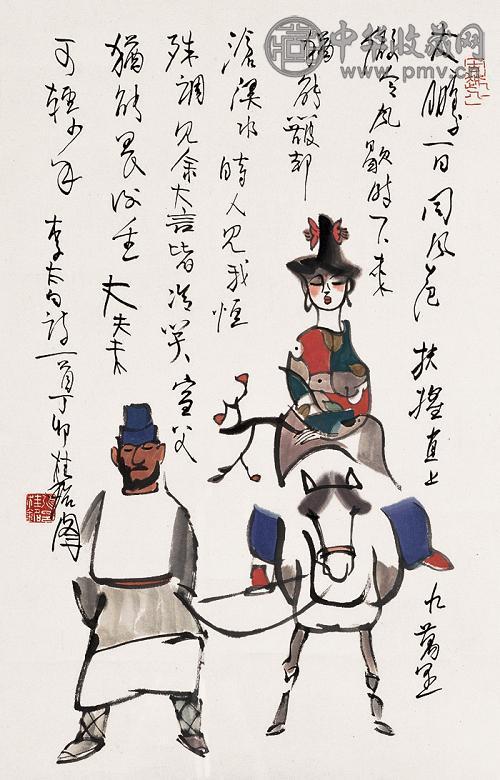 中华收藏网
www.pmv.cn
大鵬一日同风起 扶搖直上 九萬里
假令风歇时下来
猶能簸却
滄溟水 时人见我恒
殊調 见余大言皆冷笑 宣父
猶能畏后生 丈夫未
可輕少年
李太白诗一首 丁卯 桂銘
張桂銘